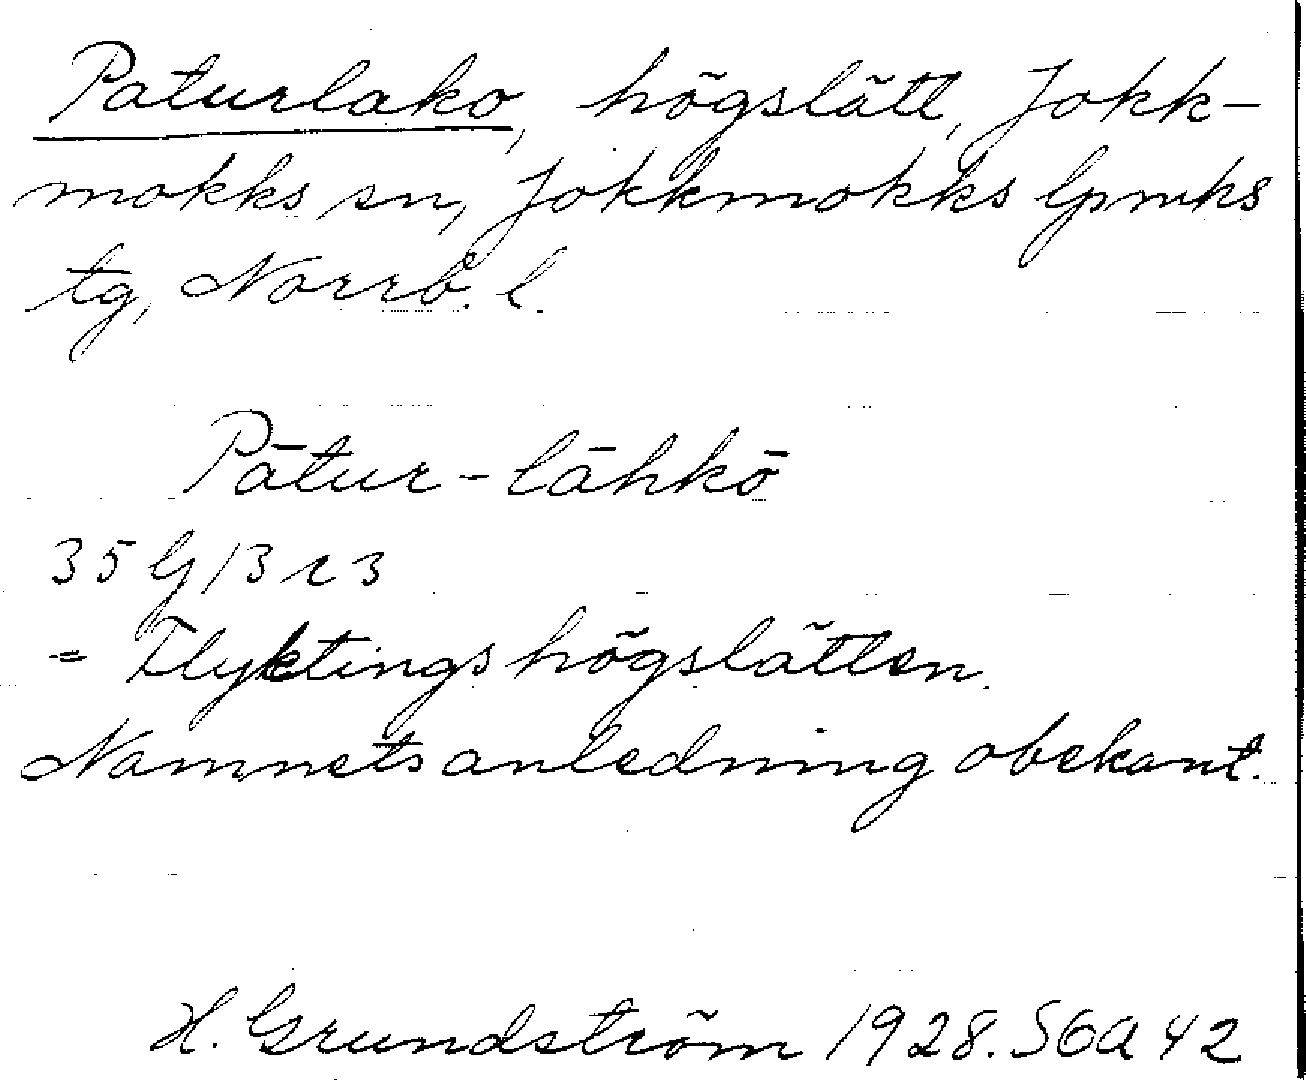 Paturlako, högslätt, Jokk-
mokks sn, Jokkmokks lpmks
tg, Norrb. l.
Pātur-lāhkō
35 G/3 c 3
= Flyktingshögslätten.
Namnets anledning obekant.
H. Grundström 1928. SGA 42